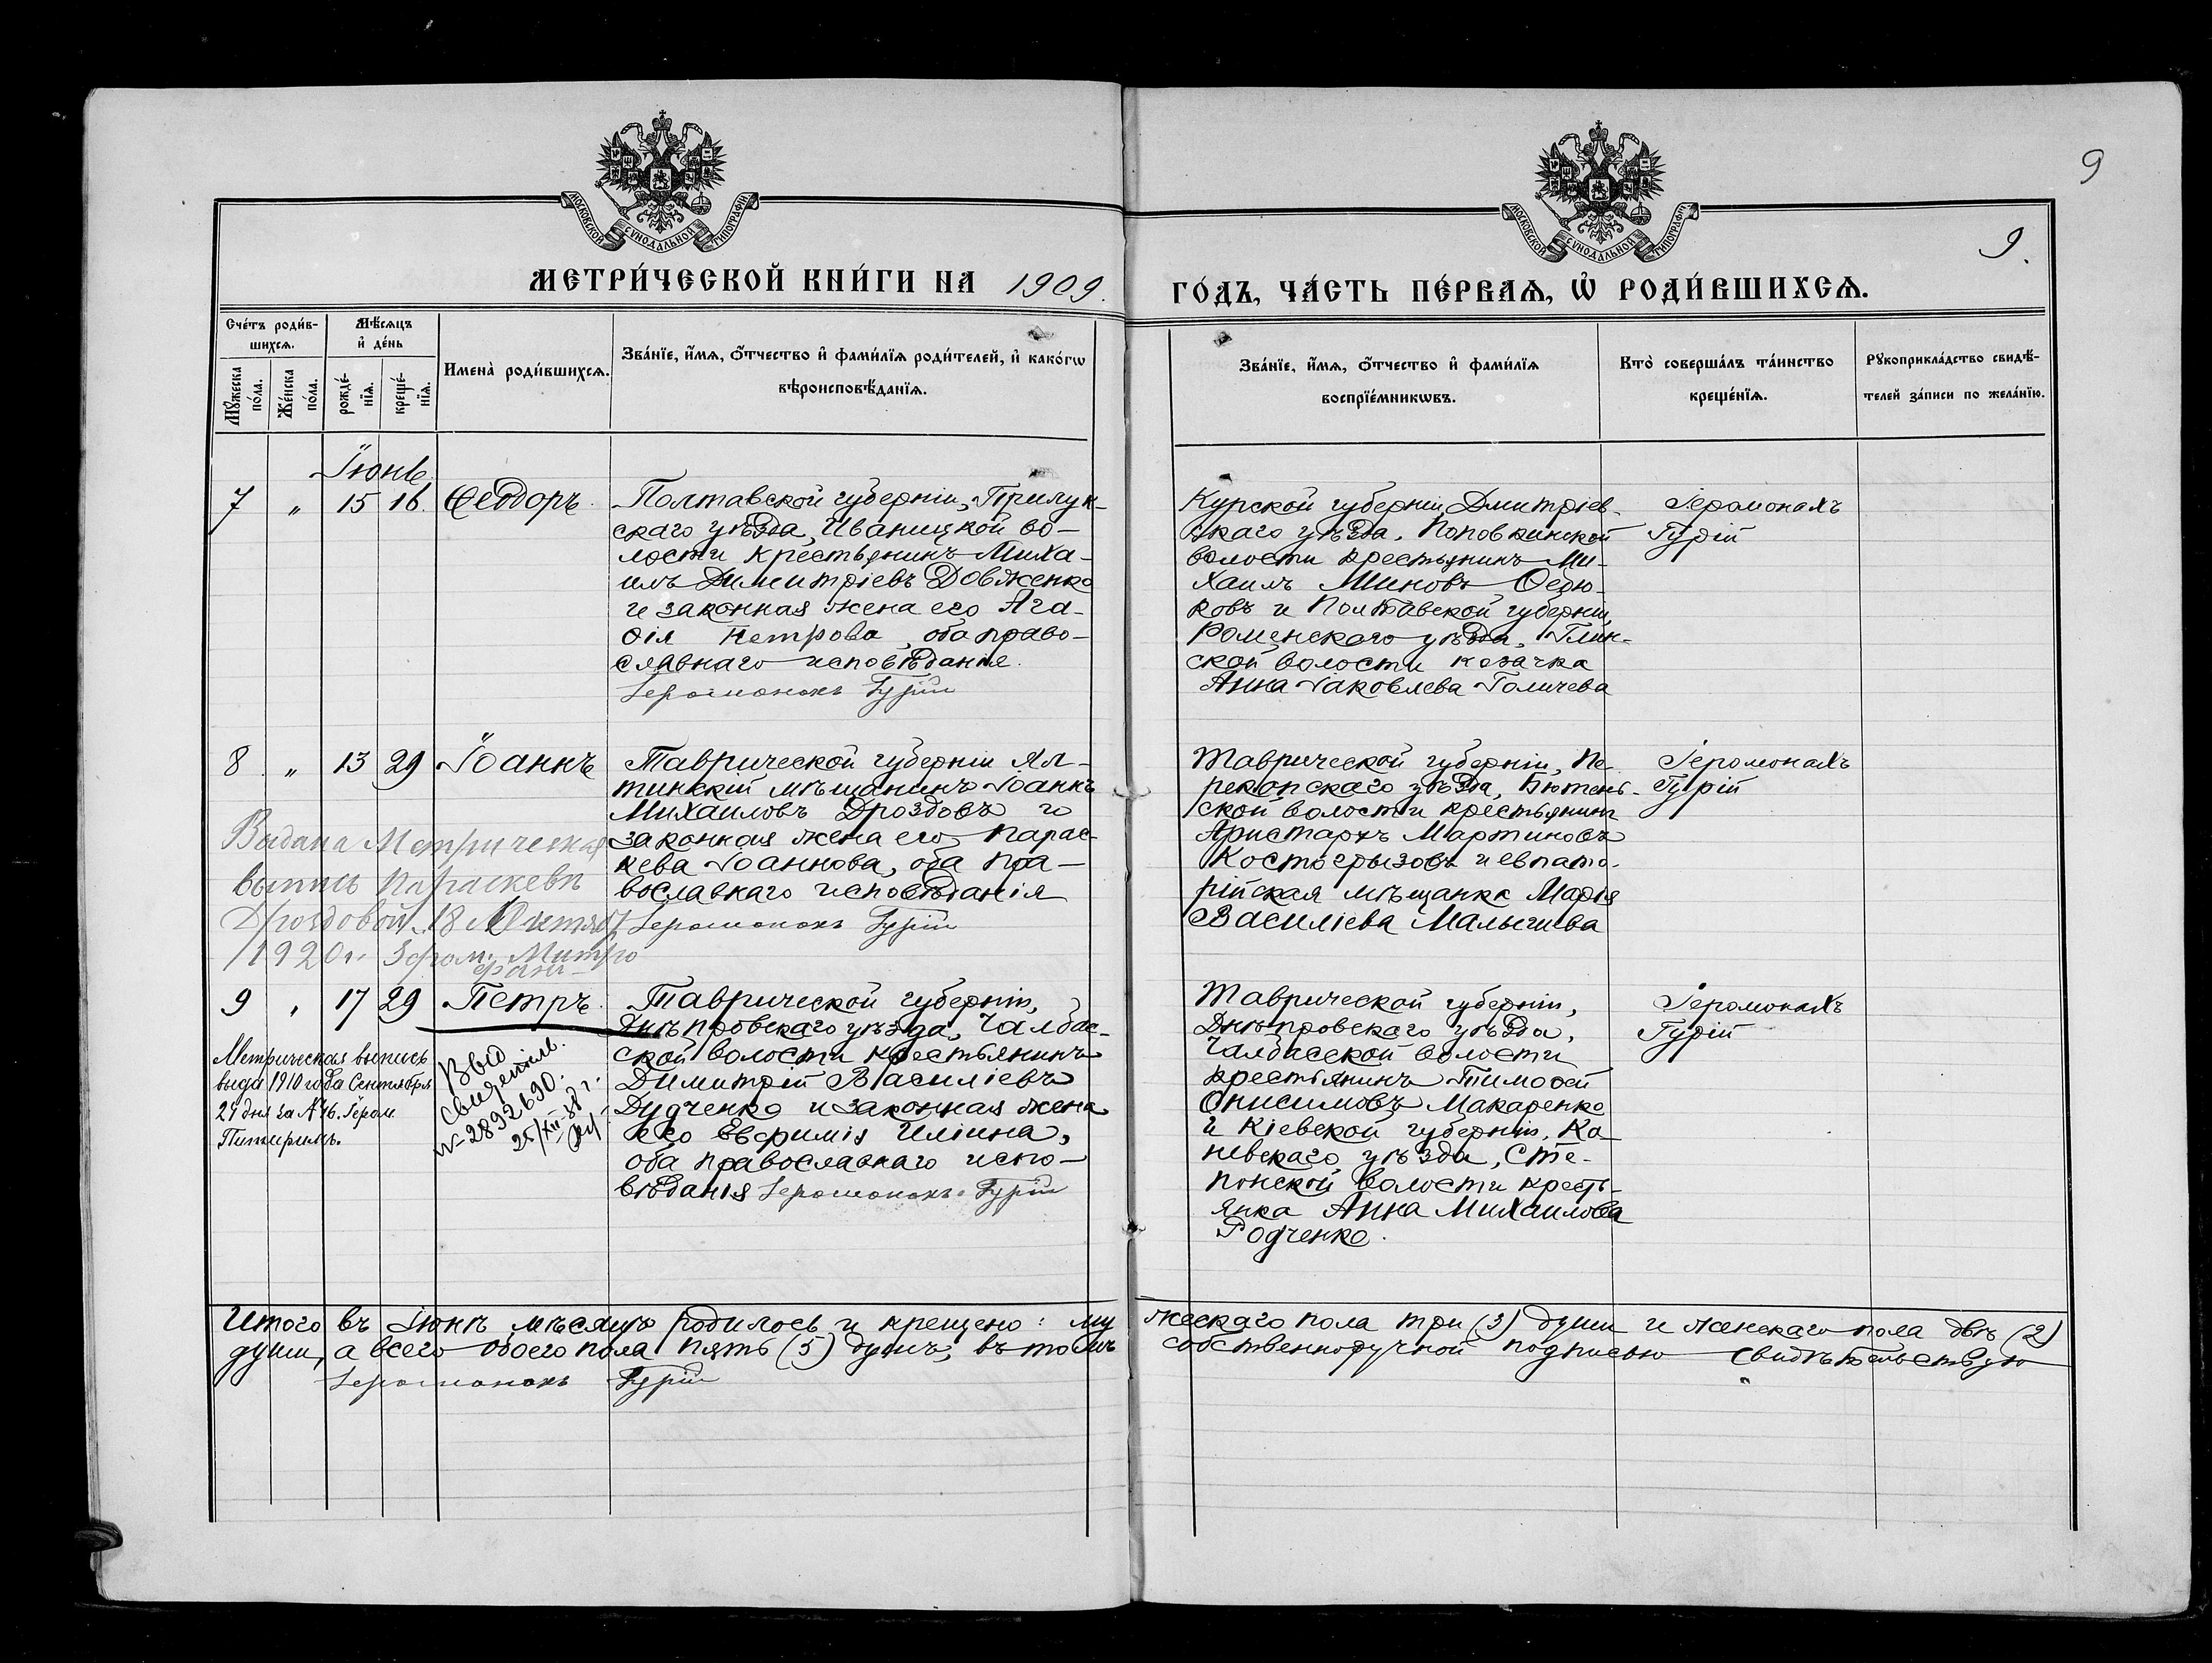 9
МОСКОВСКОЙ СѴНОДАЛЬНОЙ ТИПОГРАФІИ
МОСКОВСКОЙ СѴНОДАЛЬНОЙ ТИПОГРАФІИ
9.
МЕТРИ́ЧЕСКОЙ КНИ́ГИ НА 1909. ГО́ДЪ, ЧА́СТЬ ПЕ́РВАѦ, Ѡ҆ РОДИ́ВШИХСѦ.
Сче́тъ роди́в-
шихсѧ.
Мꙋ́жеска по́ла.
Же́нска по́ла.
Мѣ́сѧцъ
и҆ де́нь
рожде́-
нїѧ.
креще́-
нїѧ.
Имена̀ роди́вшихсѧ.
Зва́нїе, и҆́мѧ, ѻ҆́тчество и҆ фами́лїѧ роди́телей, и҆ како́гѡ
вѣроисповѣ́данїѧ.
Зва́нїе, и҆́мѧ, ѻ҆́тчество и҆ фами́лїѧ
воспрїе́мникѡвъ.
Кто̀ соверша́лъ та́инство
креще́нїѧ.
Рꙋкоприкла́дство свидѣ́-
телей за́писи по жела́нїю.
Іюнь
7 " 15 16. Ѳеодоръ.
Полтавской губерніи, Прилук-
скаго уѣзда, Иваницкой во-
лости крестьянинъ Миха-
илъ Димитріевъ Довженко
и законная жена его Ага-
ѳія Петрова, оба право-
славнаго исповѣданія.
Іеромонахъ Гурій
Курской губерніи Дмитріев-
скаго уѣзда, Поповкинской
волости крестьянинъ Ми-
хаилъ Миновъ Ѳедю-
ковъ и Полтавской губерніи,
Роменскаго уѣзда, Глин-
ской волости козачка
Анна Іаковлева Голичева
Іеромонахъ
Гурій
8 " 13 29 Іоаннъ
Таврической губерніи Ял-
тинскій мѣщанинъ Іоаннъ
Михаиловъ Дроздовъ и
законная жена его Парас-
кева Іоаннова, оба пра-
вославнаго исповѣданія
Іеромонахъ Гурій
Таврической губерніи, Пе-
рекопскаго уѣзда, Бютень-
ской волости крестьянинъ
Аристархъ Мартиновъ
Костогрызовъ и евпато-
рійская мѣщанка Марія
Василіева Малыгива
Іеромонахъ
Гурій
Выдана Метрическая
выпись Параскевѣ
Дроздовой 18 Октяб
1920 г. Іером. Митро
фанъ
9 " 17 29 Петръ.
Таврической губерніи,
Днѣпровскаго уѣзда, Чалбас-
ской волости крестьянинъ
Димитрій Василіевъ
Дудченко и законная жена
его Евфимія Иліина,
оба православнаго испо-
вѣданія Іеромонахъ Гурій
Таврической губерніи,
Днѣпровскаго уѣзда,
Чалбасской волости
крестьянинъ Тимоѳей
Онисимовъ Макаренко
и Кіевской губерніи, Ка-
невскаго уѣзда, Сте-
понской волости кресть-
янка Анна Михаилова
Родченко.
Іеромонахъ
Гурій
Метрическая выпись
выда 1910 года Сентября
24 дня за № 46. Іером
Питиримъ.
Выд
свидетель.
N-2892690.
25/XII-58 г.
Итого въ Іюнѣ мѣсяцѣ родилось и крещено: му жескаго пола три (3) души и женскаго пола двѣ (2)
души, а всего обоего пола пять (5) душъ, въ томъ собственноручной подписью свидѣтельствую
Іеромонахъ Гурій